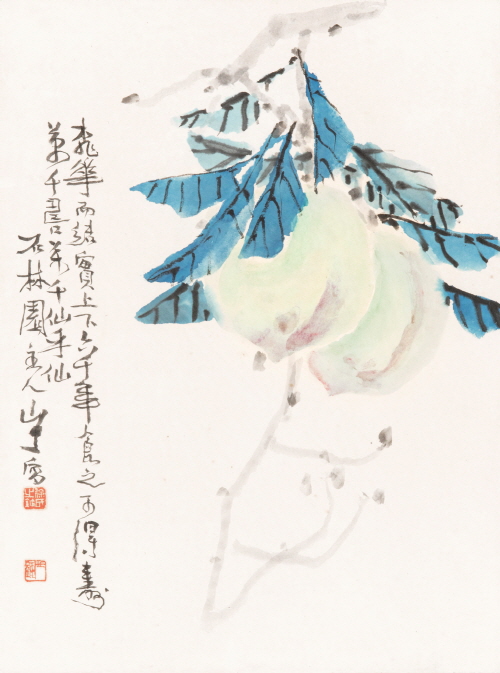 桃華而結實上下六千年食之可得壽
萬千書萬千仙手仙
石林園主人山